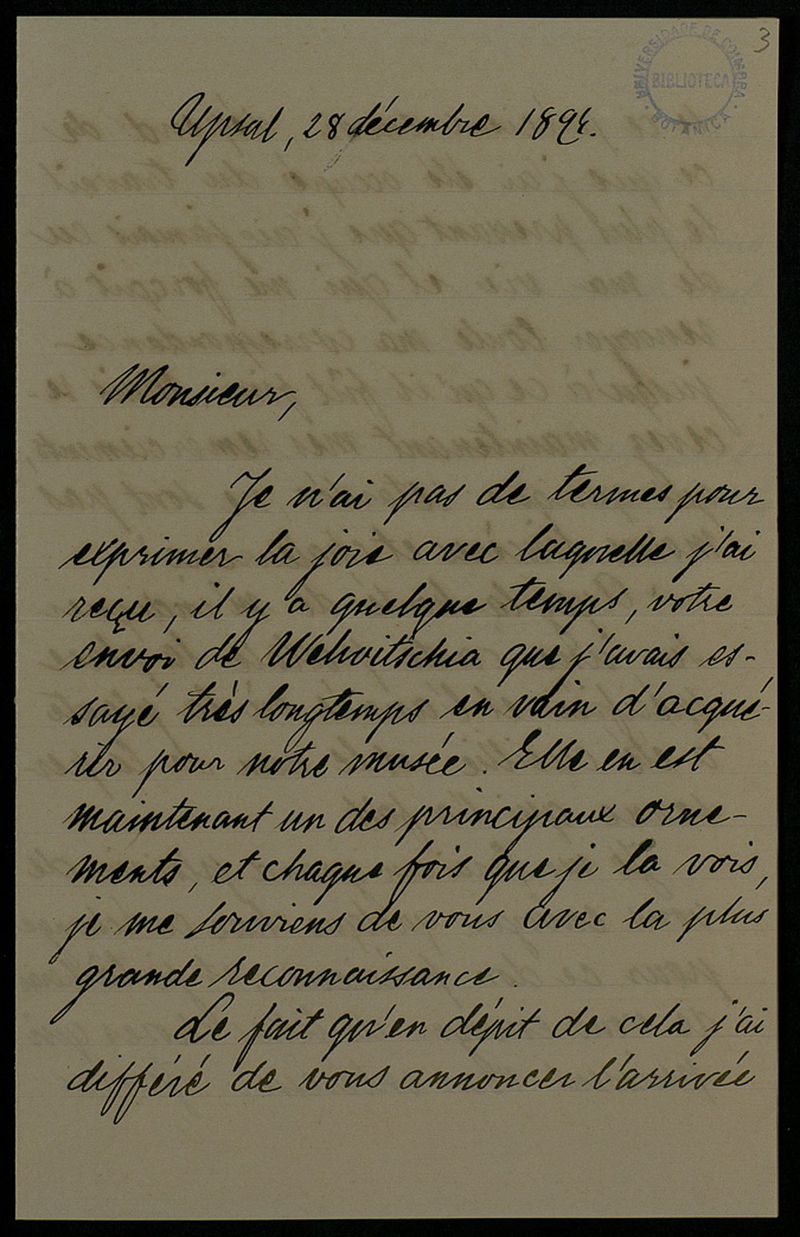 3
UNIVERSIDADE DE COIMBRA
BIBLIOTECA
BOTANICA
Upsal, 28 décembre 1894.
Monsieur,
Je n'ai pas de termes pour
exprimer la joie avec laquelle j'ai
reçu, il y a quelque temps, votre
envoi de Welwitschia que j'avais es-
sayé très longtemps en vain d'acqué-
rir pour notre musée. Elle en est
maintenant un des principaux orne-
ments, et chaque fois que je la vois,
je me souviens de vous avec la plus
grande reconnaissance.
Le fait qu'en dépit de cela j'ai
différé de vous annoncer l'arrivée